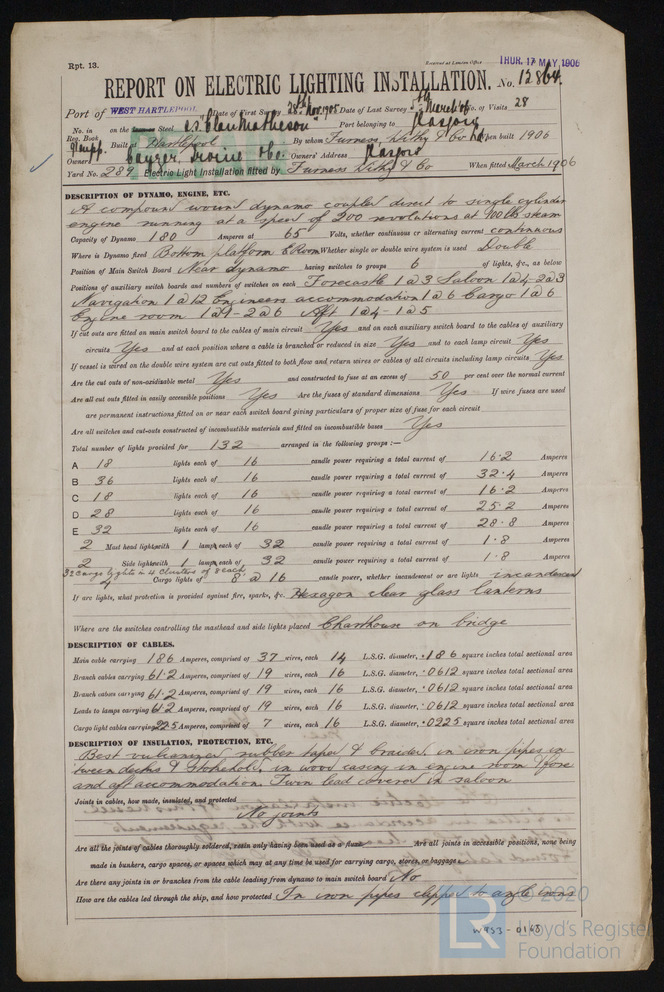 Rpt. 13.
Received at London Office THUR. 17 MAY 1906
REPORT ON ELECTRIC LIGHTING INSTALLATION. No. 12864.
Port of WEST HARTLEPOOL Date of First Survey 28th Nov 1905 Date of Last Survey 5th March 06 No. of Visits 28
No. in Reg. Book on the Steel S.S. "Clan Matheson" Port belonging to Glasgow
Suppt. Built at Hartlepool By whom Furness, Withy & Co Ltd When built 1906
Owners Cayzer, Irvine & Co. Owners' Address Glasgow
Yard No. 289 Electric Light Installation fitted by Furness Withy & Co When fitted March 1906
DESCRIPTION OF DYNAMO, ENGINE, ETC.
A compound wound dynamo coupled direct to single cylinder
engine running at a speed of 200 revolutions at 100 lbs steam
Capacity of Dynamo 180 Amperes at 65 Volts, whether continuous or alternating current continuous
Where is Dynamo fixed Bottom platform E Room Whether single or double wire system is used Double
Position of Main Switch Board Near dynamo having switches to groups 6 of lights, &c., as below
Positions of auxiliary switch boards and numbers of switches on each Forecastle 1 @ 3 Saloon 1 @ 4 - 2 @ 3
Navigation 1 @ 12 Engineers accommodation 1 @ 6 Cargo 1 @ 6
Engine room 1 @ 4 - 2 @ 6 Aft 1 @ 4 - 1 @ 5
If cut outs are fitted on main switch board to the cables of main circuit Yes and on each auxiliary switch board to the cables of auxiliary
circuits Yes and at each position where a cable is branched or reduced in size Yes and to each lamp circuit Yes
If vessel is wired on the double wire system are cut outs fitted to both flow and return wires or cables of all circuits including lamp circuits Yes
Are the cut outs of non-oxidizable metal Yes and constructed to fuse at an excess of 50 per cent over the normal current
Are all cut outs fitted in easily accessible positions Yes Are the fuses of standard dimensions Yes If wire fuses are used
are permanent instructions fitted on or near each switch board giving particulars of proper size of fuse for each circuit
Are all switches and cut-outs constructed of incombustible materials and fitted on incombustible bases Yes
Total number of lights provided for 132 arranged in the following groups :—
A 18 lights each of 16 candle power requiring a total current of 16.2 Amperes
B 36 lights each of 16 candle power requiring a total current of 32.4 Amperes
C 18 lights each of 16 candle power requiring a total current of 16.2 Amperes
D 28 lights each of 16 candle power requiring a total current of 25.2 Amperes
E 32 lights each of 16 candle power requiring a total current of 28.8 Amperes
2 Mast head lights with 1 lamp each of 32 candle power requiring a total current of 1.8 Amperes
2 Side lights with 1 lamp each of 32 candle power requiring a total current of 1.8 Amperes
32 cargo lights in 4 clusters of 8 each
4 Cargo lights of 8 @ 16 candle power, whether incandescent or arc lights incandescent
If arc lights, what protection is provided against fire, sparks, &c. Hexagon clear glass lanterns
Where are the switches controlling the masthead and side lights placed Charthouse on bridge
DESCRIPTION OF CABLES.
Main cable carrying 186 Amperes, comprised of 37 wires, each 14 L.S.G. diameter, .186 square inches total sectional area
Branch cables carrying 61.2 Amperes, comprised of 19 wires, each 16 L.S.G. diameter, .0612 square inches total sectional area
Branch cables carrying 61.2 Amperes, comprised of 19 wires, each 16 L.S.G. diameter, .0612 square inches total sectional area
Leads to lamps carrying 61.2 Amperes, comprised of 19 wires, each 16 L.S.G. diameter, .0612 square inches total sectional area
Cargo light cables carrying 22.5 Amperes, comprised of 7 wires, each 16 L.S.G. diameter, .0225 square inches total sectional area
DESCRIPTION OF INSULATION, PROTECTION, ETC.
Best vulcanized rubber taped & braided, in iron pipes in
tween decks & stokehold, in wood casing in engine room & fore
and aft accommodation. Twin lead covered in saloon
Joints in cables, how made, insulated, and protected
No joints
Are all the joints of cables thoroughly soldered, resin only having been used as a flux Are all joints in accessible positions, none being
made in bunkers, cargo spaces, or spaces which may at any time be used for carrying cargo, stores, or baggage
Are there any joints in or branches from the cable leading from dynamo to main switch board No
How are the cables led through the ship, and how protected In iron pipes clipped to angle irons
© 2020
LR Lloyd's Register
Foundation
W953-0163